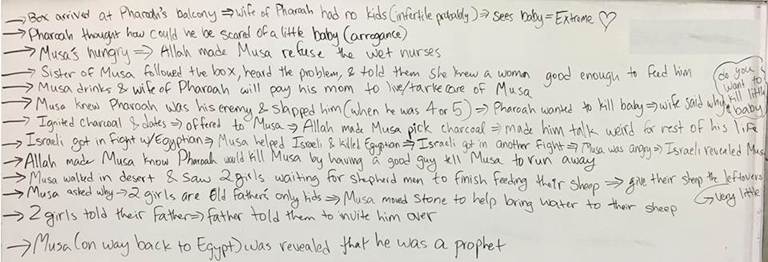 → Box arrived at Pharoah's balcony ⇒ wife of Pharoah had no kids (infertile probably) ⇒ sees baby = Extreme ♡
→ Pharoah thought how could we be scared of a little baby (arrogance)
→ Musa's hungry ⇒ Allah made Musa refuse the wet nurses
→ Sister of Musa followed the box, heard the problem, & told them she knew a woman good enough to feed him
→ Musa drinks & wife of Pharoah will pay his mom to live/tarke care of Musa
→ Musa knew Pharoah was his enemy & slapped him (when he was 4 or 5) ⇒ Pharoah wanted to kill baby ⇒ wife said why do you want to kill little baby
→ Ignited charcoal & dates ⇒ offered to Musa ⇒ Allah made Musa pick charcoal ⇒ made him talk weird for rest of his life
→ Israeli got in fight w/Egyptian ⇒ Musa helped Israeli & killed Egyptian ⇒ Israeli got in another fight ⇒ Musa was angry ⇒ Israeli revealed Musa
→ Allah made Musa know Pharoah would kill Musa by having a good guy tell Musa to run away
→ Musa walked in desert & saw 2 girls waiting for shepherd men to finish feeding their sheep ⇒ give their sheep the leftovers
→ very little
→ Musa asked why → 2 girls are old father's only kids ⇒ Musa moved stone to help bring water to their sheep
→ 2 girls told their father ⇒ father told them to invite him over
→ Musa (on way back to Egypt) was revealed that he was a prophet